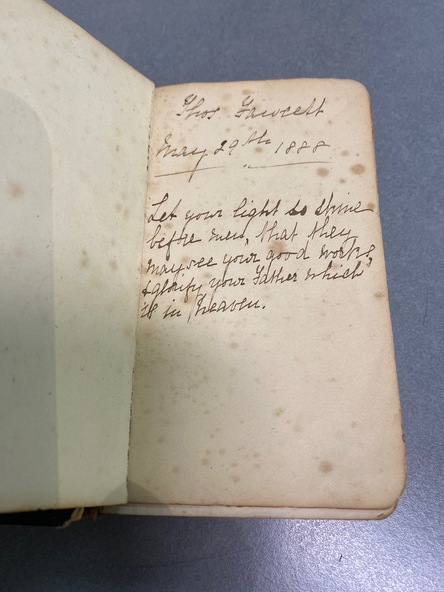 Thos. Fawcett
May 29th 1888
Let your light so shine
before men, that they
may see your good works,
& glorify your Father which
is in Heaven.